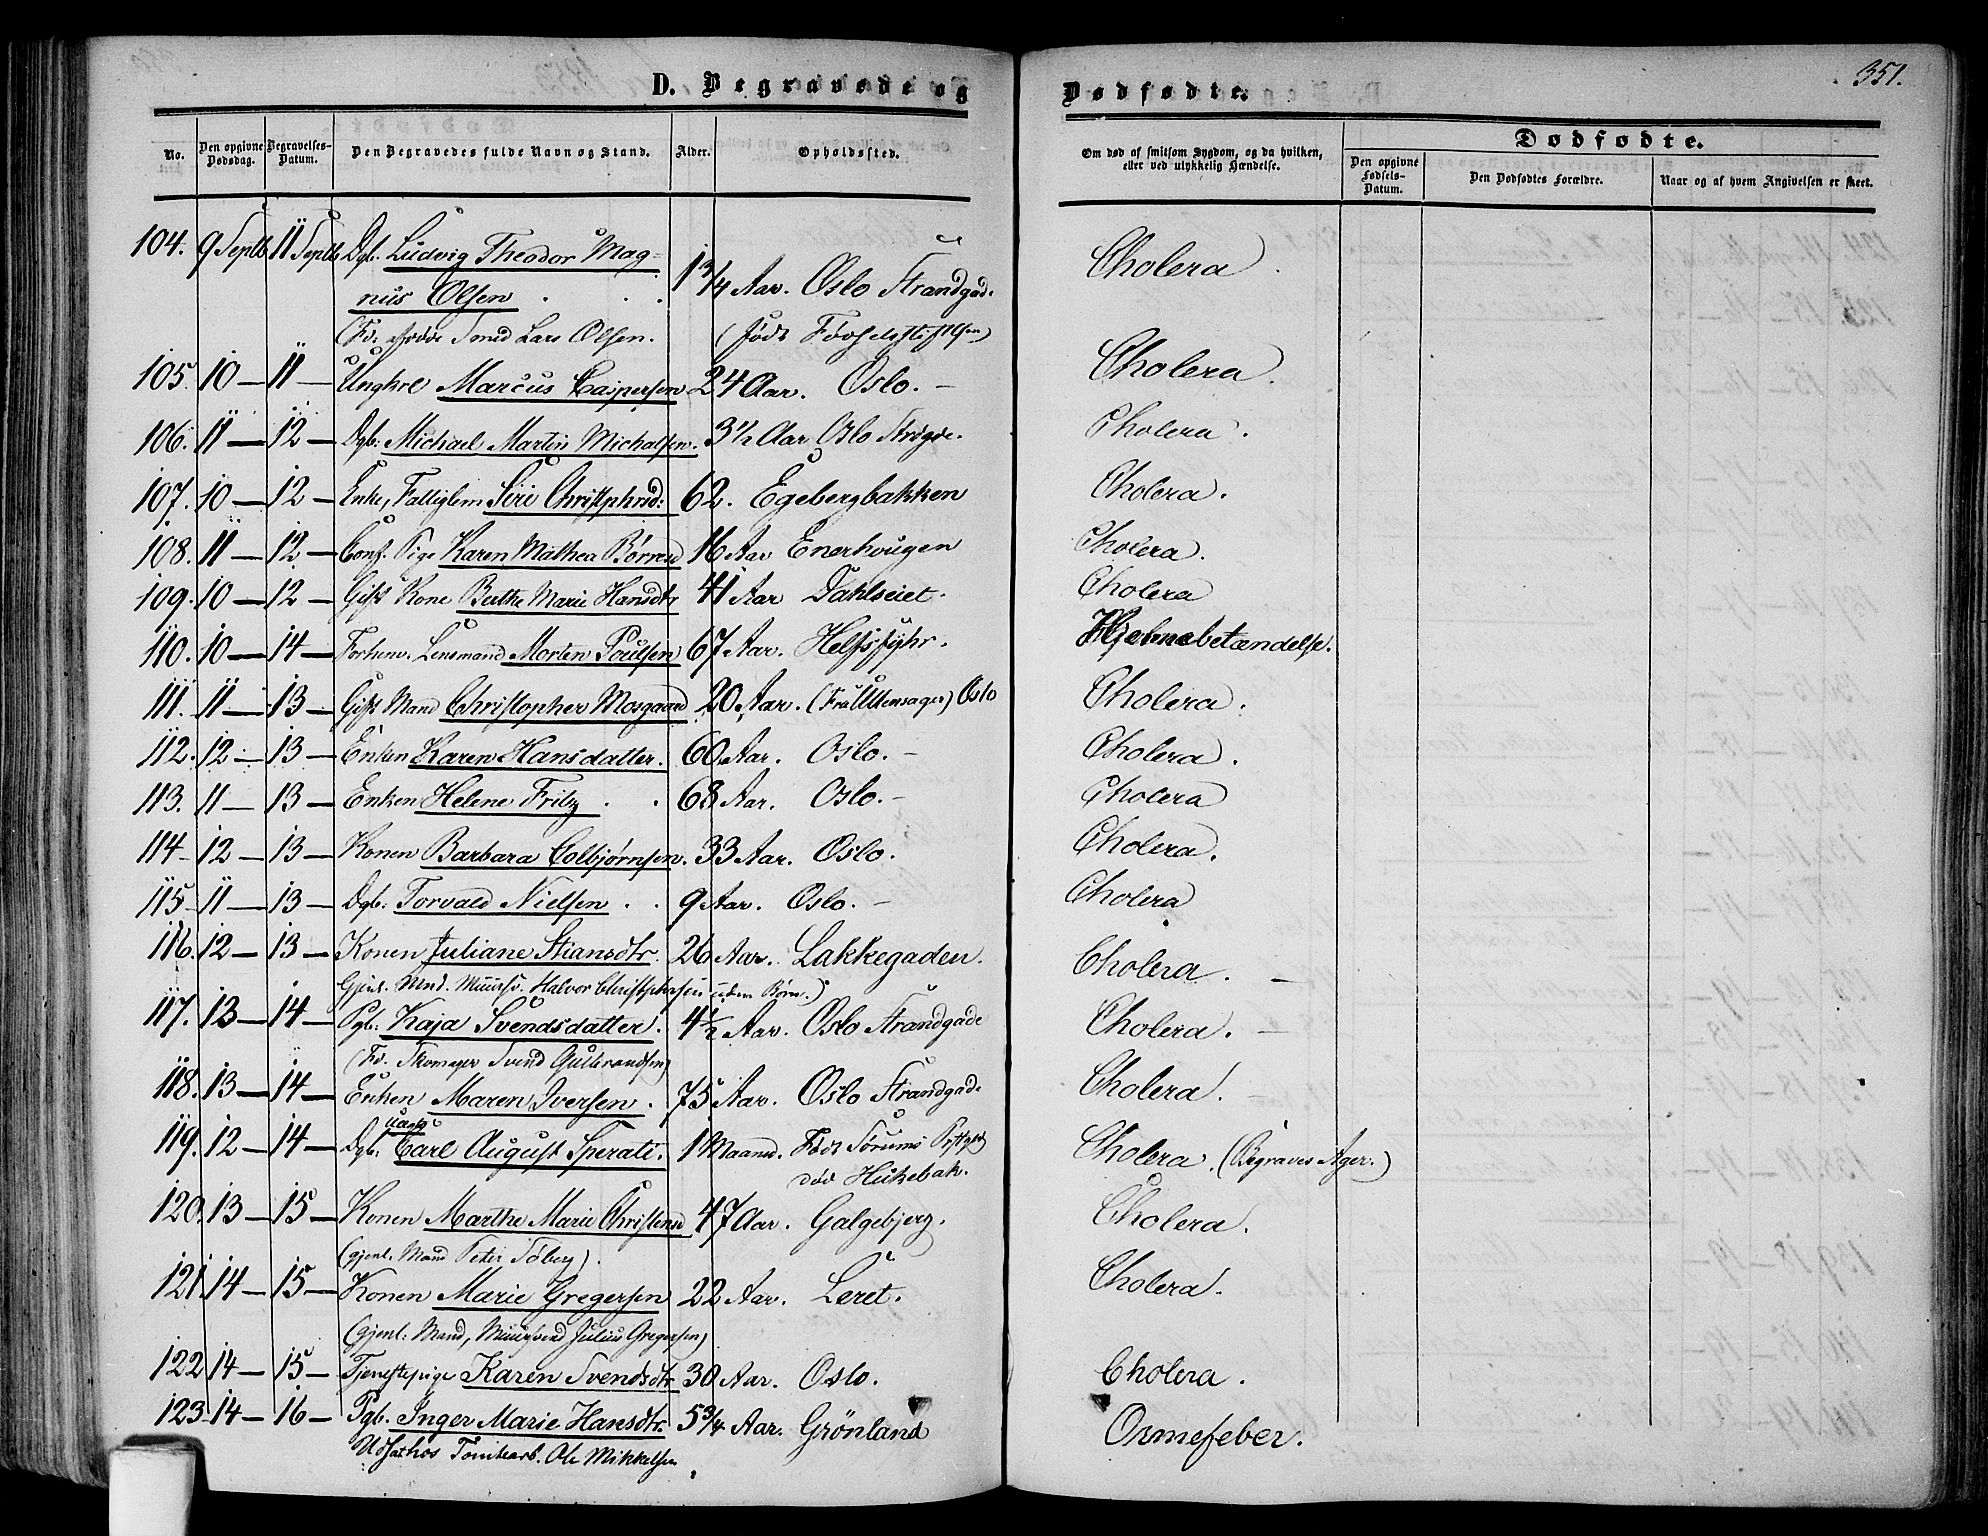 351.
D. Begravede og Dødfødte.
No. Den opgivne Dødsdag. Begravelses-Datum. Den Begravedes fulde Navn og Stand. Alder. Opholdssted. Om død af smitsom Sygdom, og da hvilken, eller ved ulykkelig Hændelse. Dødfødte.
Den opgivne Fødsels-Datum. Den Dødfødtes Forældre. Naar og af hvem Angivelsen er skeet.
104. 9 Septb 11 Septb Dgb. Ludvig Theodor Mag-
nus Olsen . . . 1 3/4 Aar. Oslo Strandgade Cholera.
(Fd. Smed Lars Olsen. (født Fødselsstiftelsen)
105. 10 — 11 — Ungkrl Marcus Caspersen 24 Aar. Oslo. — Cholera.
106. 11 — 12 — Dgb: Michael Martin Michalsen. 3 1/2 Aar Oslo Strdgde. Cholera.
107. 10 — 12 — Enke, Fattiglem Siri Christphrsd: 62. Egebergbakken Cholera.
108. 11 — 12 — Conf. Pige Karen Mathea Børresd 16 Aar Enerhougen Cholera.
109. 10 — 12 — Gift Kone Berthe Marie Hansdtr 41 Aar Dahlseiet. Cholera
110. 10 — 14 — Forhenv. Lensmand Morten Poulsen 67 Aar. Helsfyhr. Hjernebetændelse.
111. 11 — 13 — Gift Mand Christopher Mosgaard 20 Aar. (Fra Ullensager) Oslo Cholera.
112. 12 — 13 — Enken Karen Hansdatter. 60 Aar. Oslo. — Cholera.
113. 11 — 13 — Enken Helene Fritz . . 68 Aar. Oslo. — Cholera
114 — 12 — 13 — Konen Barbara Colbjørnsen. 33 Aar. Oslo. Cholera.
115 — 11 — 13 — Dgb: Torvald Nielsen . . 9 Aar. Oslo. — Cholera
116. 12 — 13 — Konen Juliane Stiansdtr. 26 Aar. Lakkegaden. Cholera. —
Gjenl. Mnd. Muursv. Halvor Christophersen uden Børn.)
117. 13 — 14 — Pgb: Kaja Svendsdatter. 4 1/2 Aar. Oslo Strandgade Cholera. —
(Fd. Skomager Svend Gulbrandsen)
118. 13 — 14 — Enken Maren Iversen . 75 Aar. Oslo Strandgade Cholera. —
119. 12 — 14 — Dgb. uægt. Carl August Sperati. 1 Maaned. Født Sørums Cholera. (Begraves Ager.)
død Hukebak.
120. 13 — 15 — Konen Marthe Marie Christensd 47 Aar. Galgebjerg. Cholera.
(gjenl. Mand Peter Søberg).
121. 14 — 15 — Konen Marie Gregersen 22 Aar. Leret. Cholera.
(gjenl: Mand, Muursvend Julius Gregersen)
122 14 — 15 — Tjenestepige Karen Svendsdtr 30 Aar. Oslo. Cholera.
123 — 14 — 16 — Pgb. Inger Marie Hansdtr. 5 3/4 Aar. Grönland Ormefeber.
Udsathos Tomtearb. Ole Mikkelsen